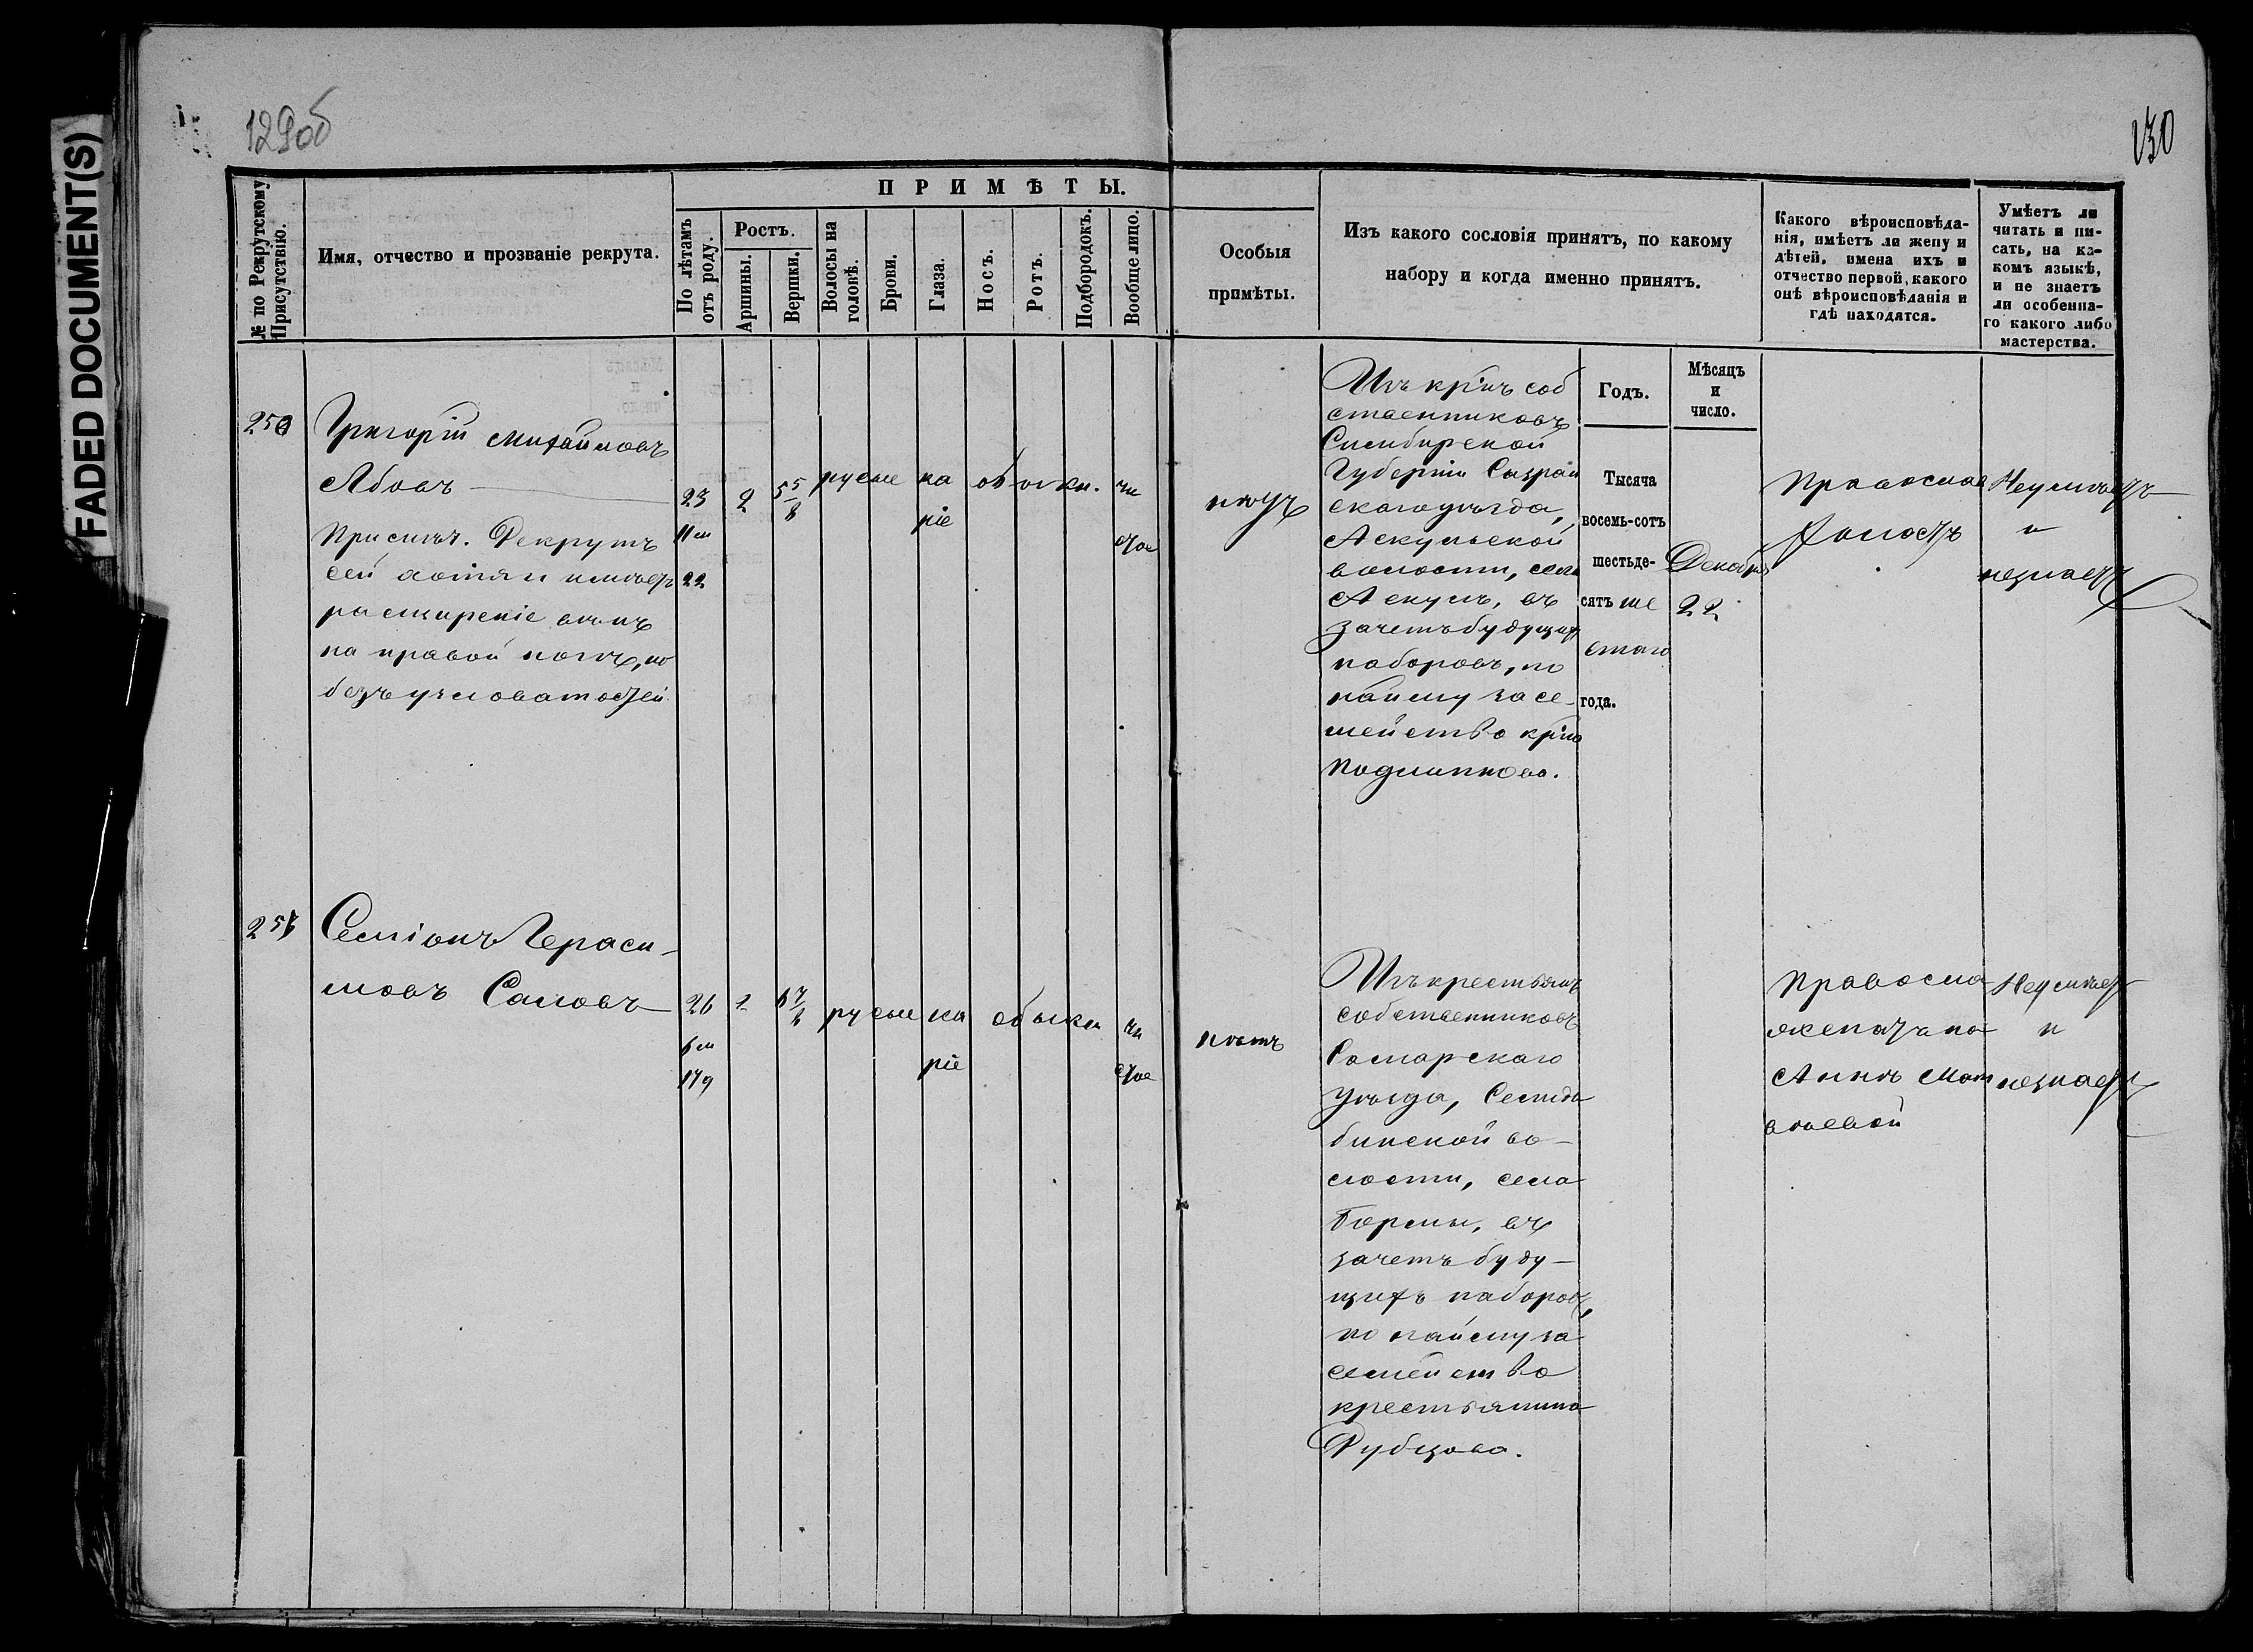 FADED DOCUMENT(S)
129об
130
№ по Рекрутскому Присутствію.
Имя, отчество и прозваніе рекрута.
ПРИМѢТЫ.
По лѣтамъ отъ роду.
Ростъ.
Аршины.
Вершки.
Волосы на головѣ.
Брови.
Глаза.
Носъ.
Ротъ.
Подбородокъ.
Вообще лицо.
Особыя
примѣты.
Изъ какого сословія принятъ, по какому
набору и когда именно принятъ.
Какого вѣроисповѣда-
нія, имѣетъ ли жену и
дѣтей, имена ихъ и
отчество первой, какого
онѣ вѣроисповѣданія и
гдѣ находятся.
Умѣетъ ли
читать и пи-
сать, на ка-
комъ языкѣ,
и не знаетъ
ли особенна-
го какого либо
мастерства.
Годъ.
Мѣсяцъ
и
число.
Григорій Михайловъ
Абовъ
Присмъч. Рекрутъ
сей хотя и имѣетъ
расширеніе венъ
на правой ногѣ, но
безъ узловатостей
23
11 м
22
2
5 5/8
русые
ка
ріе
обыкн.
чи
стое
нѣтъ
Изъ кр-нъ соб
ственниковъ
Симбирской
Губерніи Сызран
скаго уѣзда,
Аскульской
волости, села
Аскулъ, въ
зачетъ будущихъ
наборовъ, по
найму за се-
мейство кр-на
Подлипнова.
Тысяча
восемь-сотъ
шестьде-
сятъ ше
стаго
года.
Декабря
22
Православ
холостъ
Неумѣетъ
и
незнаетъ
Семіонъ Гераси-
мовъ Саловъ
26
6 м
17 д
русые
ка
ріе
обыкн
чи
стое
нѣтъ
Изъ крестьянъ
собственниковъ
Самарскаго
Уѣзда,
бинской во-
лости, села
Бормы, въ
зачетъ буду-
щихъ наборовъ,
по найму за
семейство
крестьянина
Рубцова.
Правосла
женатъ на
Аннѣ Мат
вѣевой
Неумѣетъ
и
незнаетъ